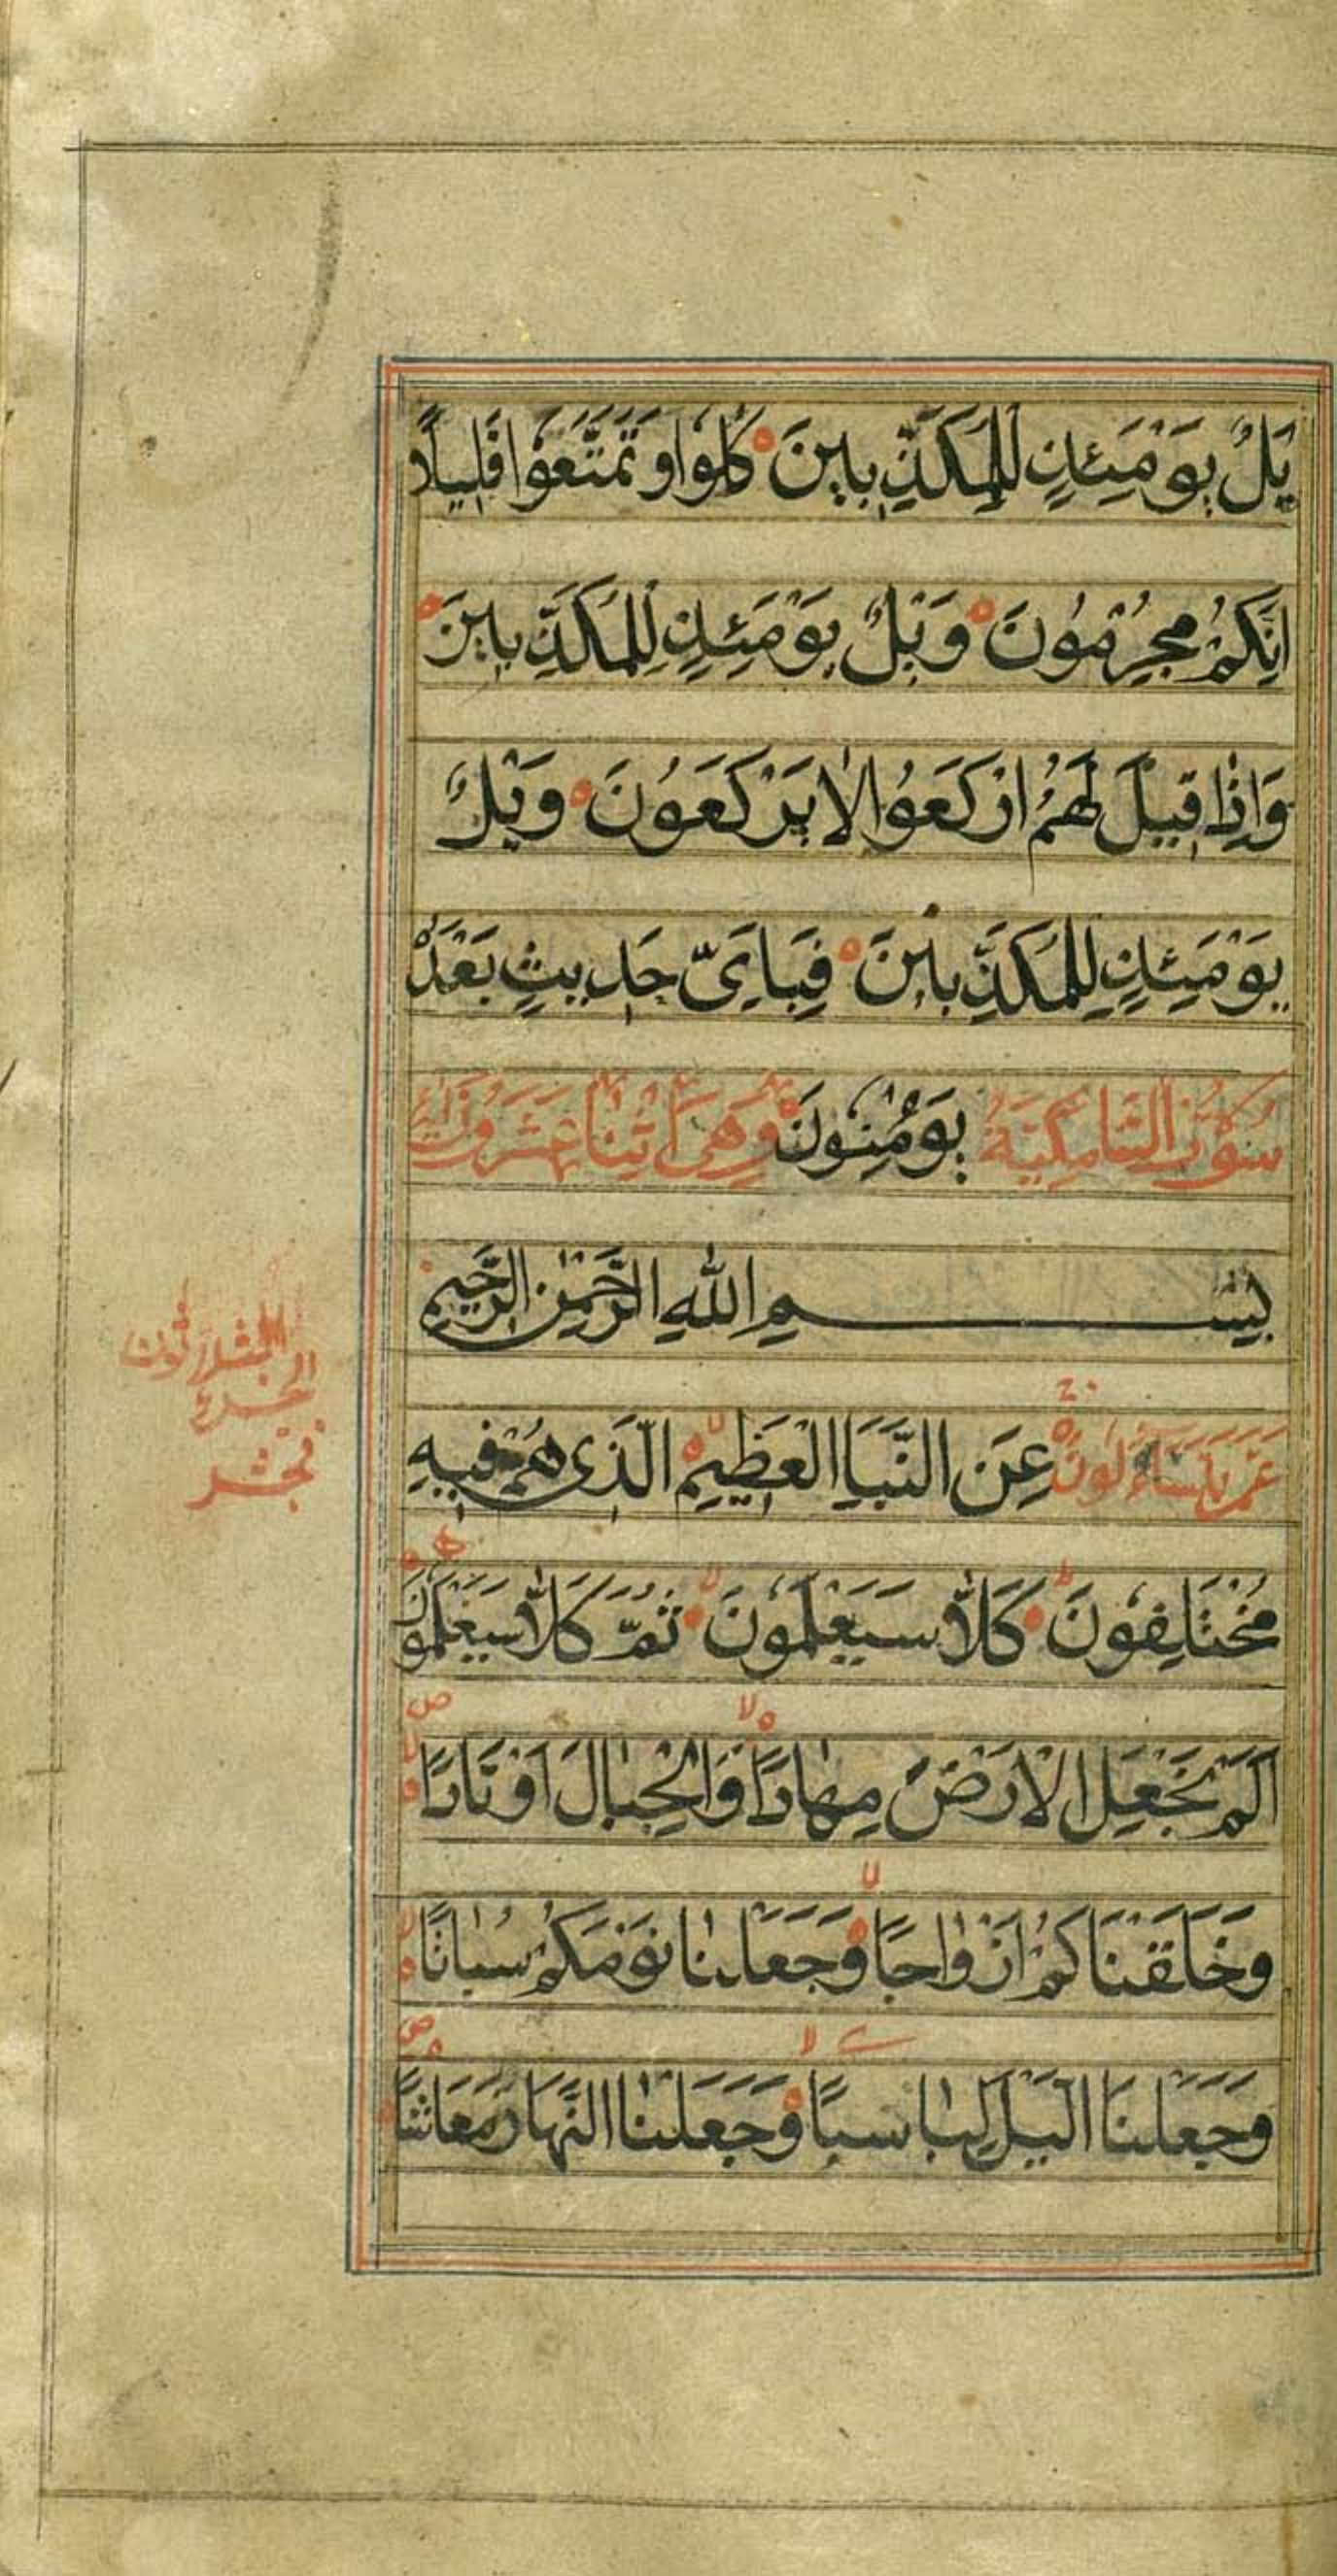 يْلٌ يَوْمَئِذٍ لِلْمُكَذِّبِينَ كُلُوا وَتَمَتَّعُوا قَلِيلًا
إِنَّكُمْ مُجْرِمُونَ وَيْلٌ يَوْمَئِذٍ لِلْمُكَذِّبِينَ
وَإِذَا قِيلَ لَهُمُ ارْكَعُوا لَا يَرْكَعُونَ وَيْلٌ
يَوْمَئِذٍ لِلْمُكَذِّبِينَ فَبِأَيِّ حَدِيثٍ بَعْدَهُ
سورة النبأ مكية يُؤْمِنُونَ وهي اثنا عشرون آية
بِسْمِ اللَّهِ الرَّحْمٰنِ الرَّحِيمِ
عَمَّ يَتَسَاءَلُونَ عَنِ النَّبَإِ الْعَظِيمِ الَّذِي هُمْ فِيهِ
مُخْتَلِفُونَ كَلَّا سَيَعْلَمُونَ ثُمَّ كَلَّا سَيَعْلَمُونَ
أَلَمْ نَجْعَلِ الْأَرْضَ مِهَادًا وَالْجِبَالَ أَوْتَادًا
وَخَلَقْنَاكُمْ أَزْوَاجًا وَجَعَلْنَا نَوْمَكُمْ سُبَاتًا
وَجَعَلْنَا اللَّيْلَ لِبَاسًا وَجَعَلْنَا النَّهَارَ مَعَاشًا
الجزء